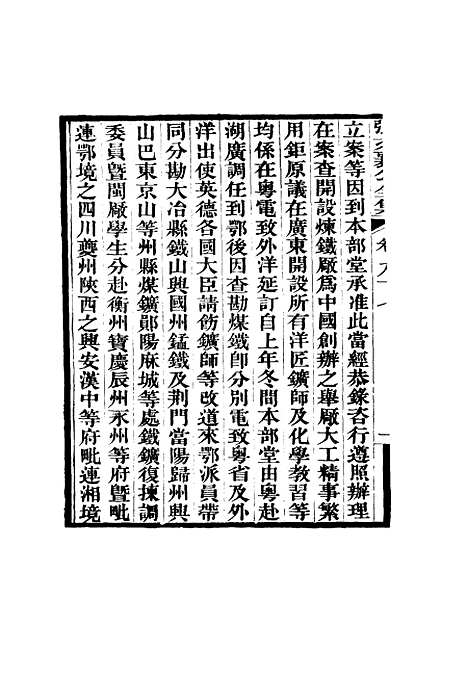 立案等因到本部堂承准此當經恭錄咨行遵照辦理
在案查開設煉鐵厰為中國創辦之舉厰大工精事繁
用鉅原議在廣東開設所有洋匠鑛師及化學教習等
均係在粵電致外洋延訂自上年冬間本部堂由粵赴
湖廣調任到鄂後因查勘煤鐵卽分別電致粵省及外
洋出使英德各國大臣請飭鑛師等改道來鄂派員帶
同分勘大冶縣鐵山興國州錳鐵及荆門當陽歸州興
山巴東京山等州縣煤鑛鄖陽麻城等處鐵鑛復揀調
委員曁閩厰學生分赴衡州寶慶辰州永州等府曁毗
連鄂境之四川夔州陝西之興安漢中等府毗連湘境